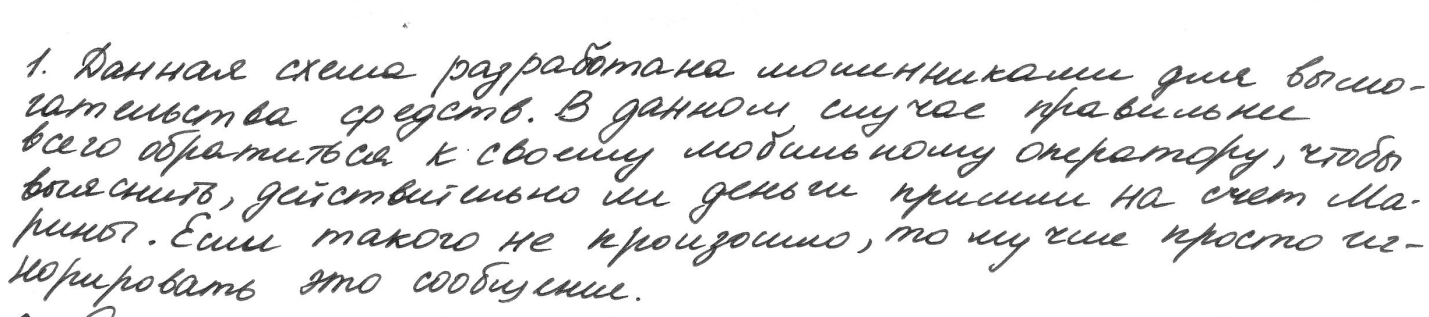 1. Данная схема разработана мошенниками для вымо-
гательства средств. В данном случае правильне
всего обратиться к своему мобильному оператору, чтобы
выяснить, действительно ли деньги пришли на счет Ма-
рины. Если такого не произошло, то лучше просто иг-
норировать это сообщение.